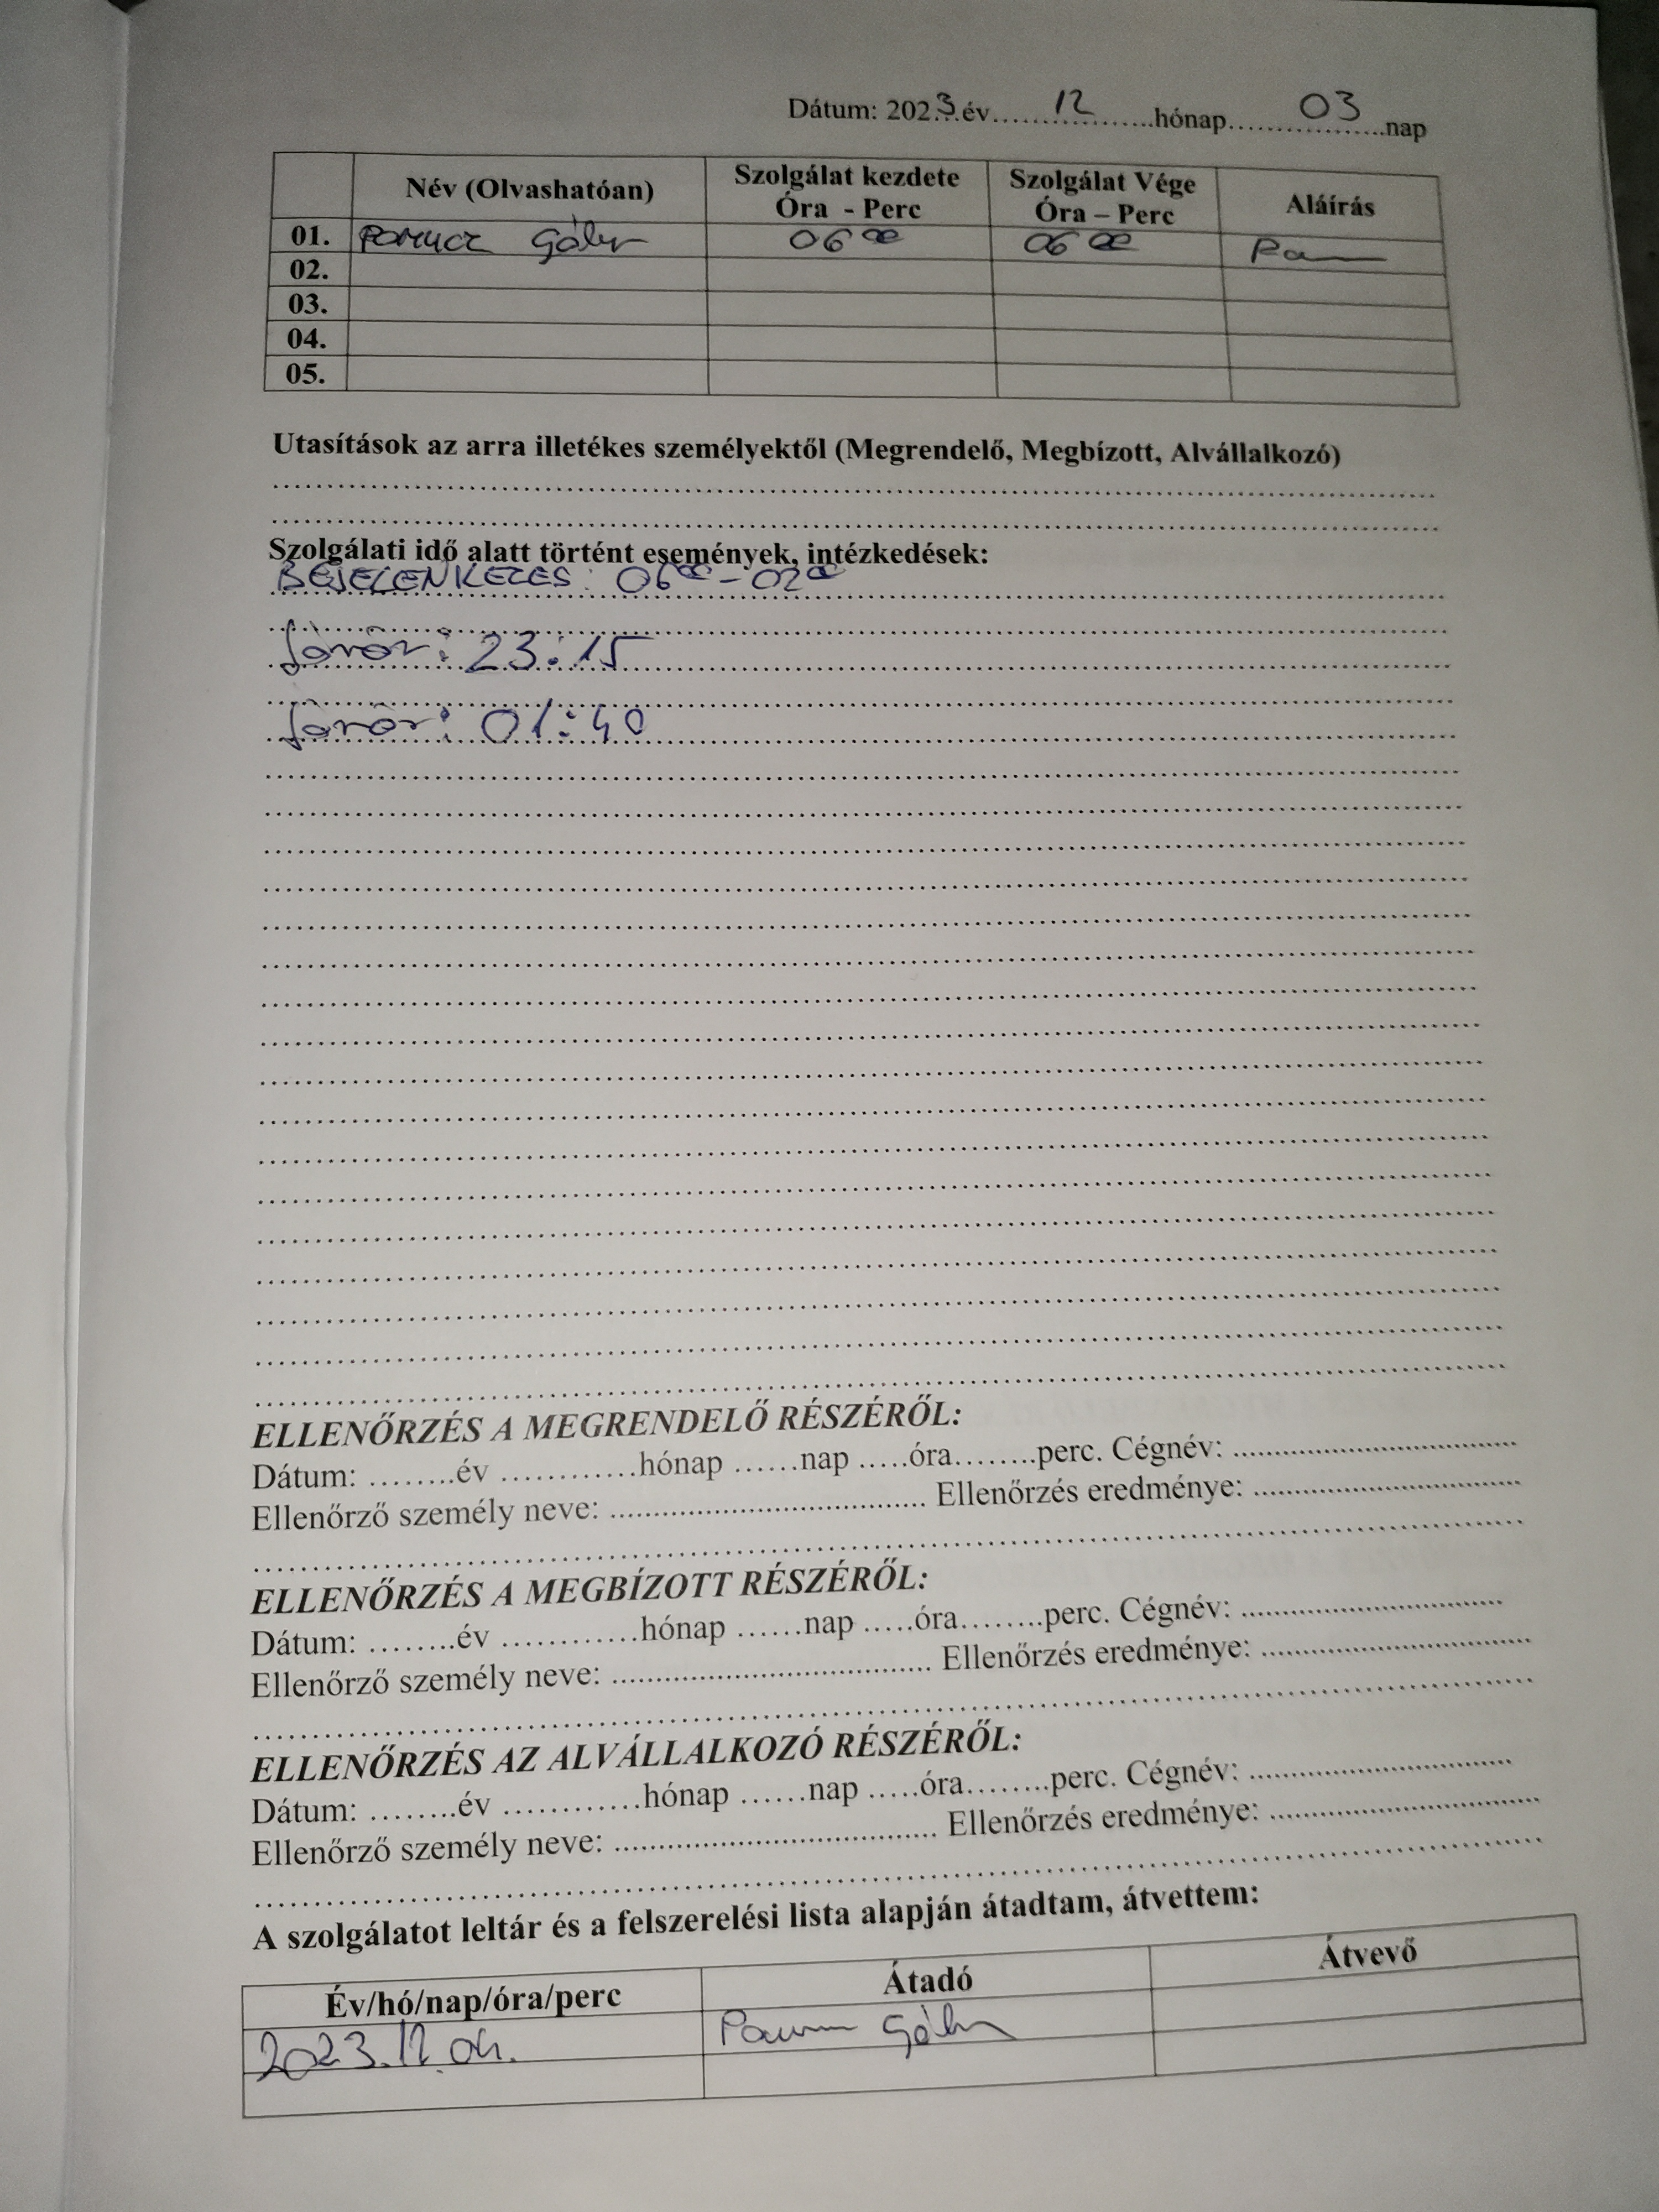 Dátum: 2023 év 12 hónap 03 nap
Név (Olvashatóan) Szolgálat kezdete Óra - Perc Szolgálat Vége Óra – Perc Aláírás
01. Gábor 06 00 06 00
02.
03.
04.
05.
Utasítások az arra illetékes személyektől (Megrendelő, Megbízott, Alvállalkozó)
Szolgálati idő alatt történt események, intézkedések:
BEJELENKEZES: 06 00 - 02 00
Járőr: 23:15
Járőr: 01:40
ELLENŐRZÉS A MEGRENDELŐ RÉSZÉRŐL:
Dátum: ........év ............hónap ......nap .....óra........perc. Cégnév: ....................................
Ellenőrző személy neve: ........................................ Ellenőrzés eredménye: ..................................
ELLENŐRZÉS A MEGBÍZOTT RÉSZÉRŐL:
Dátum: ........év ............hónap ......nap .....óra........perc. Cégnév: ....................................
Ellenőrző személy neve: ........................................ Ellenőrzés eredménye: ..................................
ELLENŐRZÉS AZ ALVÁLLALKOZÓ RÉSZÉRŐL:
Dátum: ........év ............hónap ......nap .....óra........perc. Cégnév: ....................................
Ellenőrző személy neve: ........................................ Ellenőrzés eredménye: ..................................
A szolgálatot leltár és a felszerelési lista alapján átadtam, átvettem:
Év/hó/nap/óra/perc Átadó Átvevő
2023.12.04. Gábor